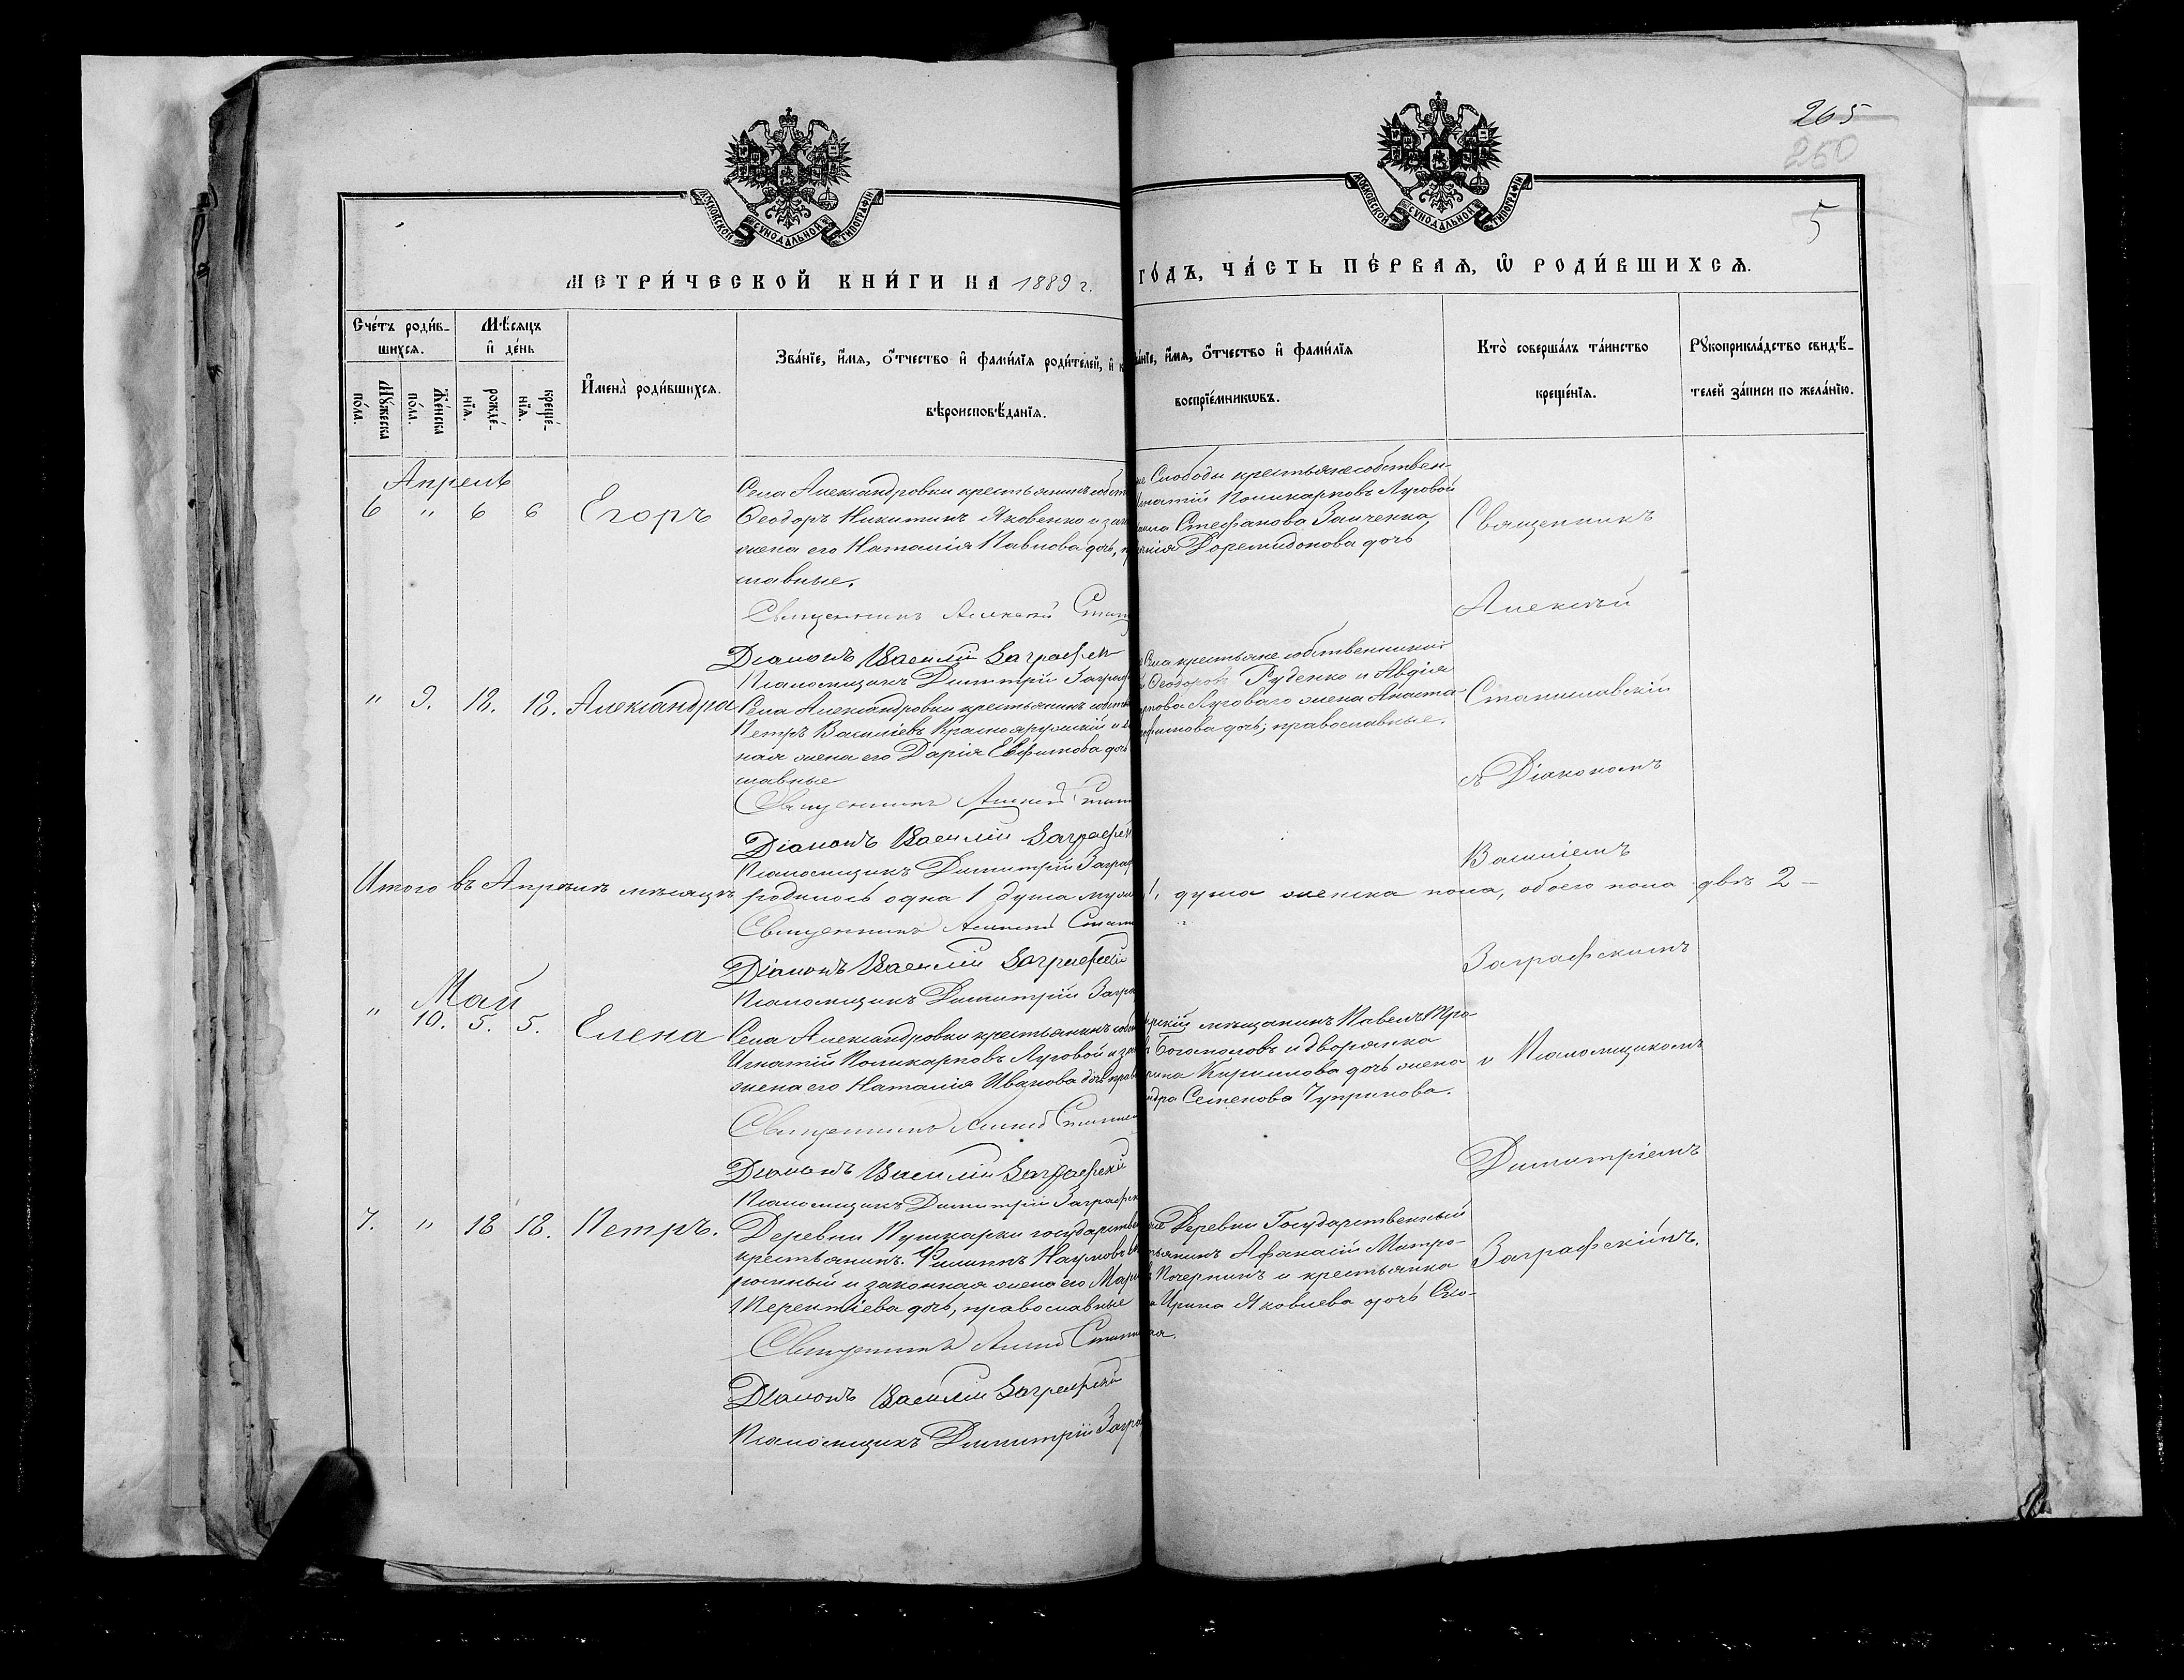 265
250
5
МОСКОВСКОЙ СѴНОДАЛЬНОЙ ТИПОГРАФІИ
МОСКОВСКОЙ СѴНОДАЛЬНОЙ ТИПОГРАФІИ
МЕТРИ́ЧЕСКОЙ КНИ́ГИ НА 1889 г.
ГО́ДЪ, ЧА́СТЬ ПЕ́РВАЯ, Ѽ РОДИ́ВШИХСЯ.
Сче́тъ роди́в-
шихся.
Мꙋ́жеска
по́ла.
Же́нска
по́ла.
Мѣ́сяцъ
и҆ де́нь
рожде́-
нїя.
креще́-
нїя.
И҆мена̀ роди́вшихся.
Зва́нїе, и҆́мя, ѻ҆́тчество и҆ фами́лїя роди́телей, и҆
вѣроисповѣ́данїя.
и҆́мя, ѻ҆́тчество и҆ фами́лїя
воспрїе́мникѡвъ.
Кто̀ соверша́лъ та́инство
креще́нїя.
Рꙋкоприкла́дство свидѣ́-
телей за́писи по жела́нїю.
Апрель
6 " 6 6 Егоръ
Села Александровки крестьянинъ собст
Ѳеодоръ Никитинъ Яковенко и зак
жена его Наталія Павлова дочь, п
славные.
Священникъ Алексѣй Стан
Діаконъ Василій Заграфск
Псаломщикъ Димитрій Заграф
Слободы крестьяне собствен-
Игнатій Поликарповъ Луговой
Стефанова Заиченка
Дормидонова дочь
" 9. 18. 18. Александра
Села Александровки крестьянинъ собств
Петръ Василіевъ Краснояружскій и за
ная жена его Дарія Евфимова дочь
славные
Священникъ Алексѣй Стан
Діаконъ Василій Заграфск
Псаломщикъ Димитрій Заграф
Села крестьяне собственники:
Ѳеодоровъ Руденко и Авдія
Луговаго жена Анаста-
дочь; православные.
Итого въ Апрѣлѣ мѣсяцѣ родилось одна 1 душа муж
1, душа женска пола, обоего пола двѣ 2 –
Священникъ Алексѣй Стан
Діаконъ Василій Заграфскій
Псаломщикъ Димитрій Загра
Май
" 10. 5. 5. Елена
Села Александровки крестьянинъ собст
Игнатій Поликарповъ Луговой и зак
жена его Наталія Иванова дочь прав
Священникъ Алексѣй Станис
Діаконъ Василій Заграфскій
Псаломщикъ Димитрій Заграфск
мѣщанинъ Павелъ Про
Богомоловъ и дворянка
Кирилова дочь жена
Семенова Чупринова.
7. " 18 18. Петръ.
Деревни Пушкарки государств
крестьянинъ Филиппъ Наумовъ
и законная жена его Марі
Терентіева дочь, православные
Священникъ Алексѣй Станис
Діаконъ Василій Заграфскій
Псаломщикъ Димитрій Загра
Деревни Государственный
Афанасій Митро-
и крестьянка
Ирина Яковлева дочь Ско-
Священникъ
Алексѣй
Станиславскій
съ Діакономъ
Василіемъ
Заграфскимъ
и Псаломщикомъ
Димитріемъ
Заграфскимъ.